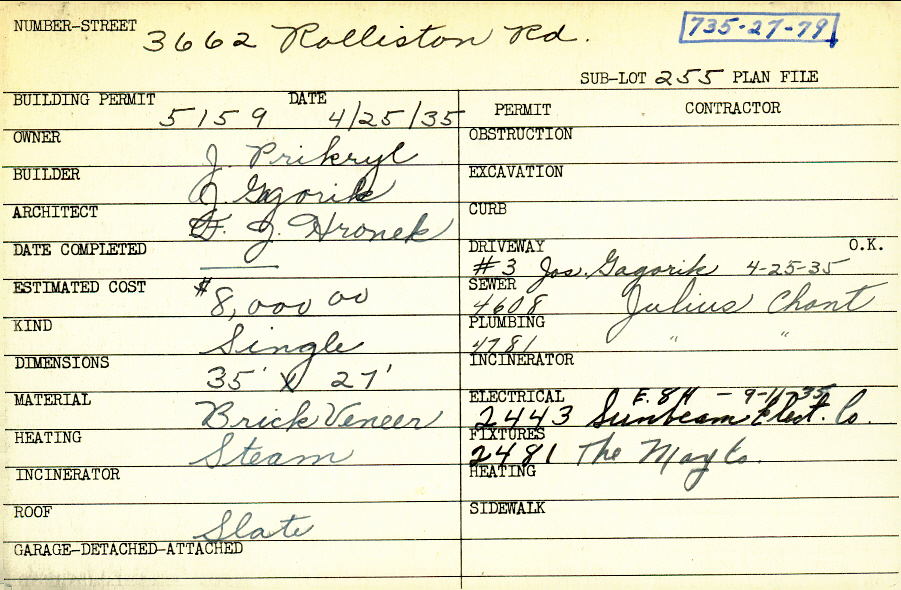 NUMBER-STREET 3662 Rolliston Rd. 735-27-79
SUB-LOT 255 PLAN FILE
BUILDING PERMIT 5159 DATE 4/25/35
PERMIT CONTRACTOR
OWNER J. Prikryl
OBSTRUCTION
BUILDER J. Gagorik
EXCAVATION
ARCHITECT F. J. Hronek
CURB
DATE COMPLETED ——
DRIVEWAY O.K.
#3 Jos. Gagorik 4-25-35
ESTIMATED COST $8,000 00
SEWER
4608 Julius Chant
KIND Single
PLUMBING
4781 " "
DIMENSIONS 35' X 27'
INCINERATOR
MATERIAL Brick Veneer
ELECTRICAL E. 84 - 9-11-35
2443 Sunbeam Elect. Co.
HEATING Steam
FIXTURES
2481 The May Co.
INCINERATOR
HEATING
ROOF Slate
SIDEWALK
GARAGE-DETACHED-ATTACHED